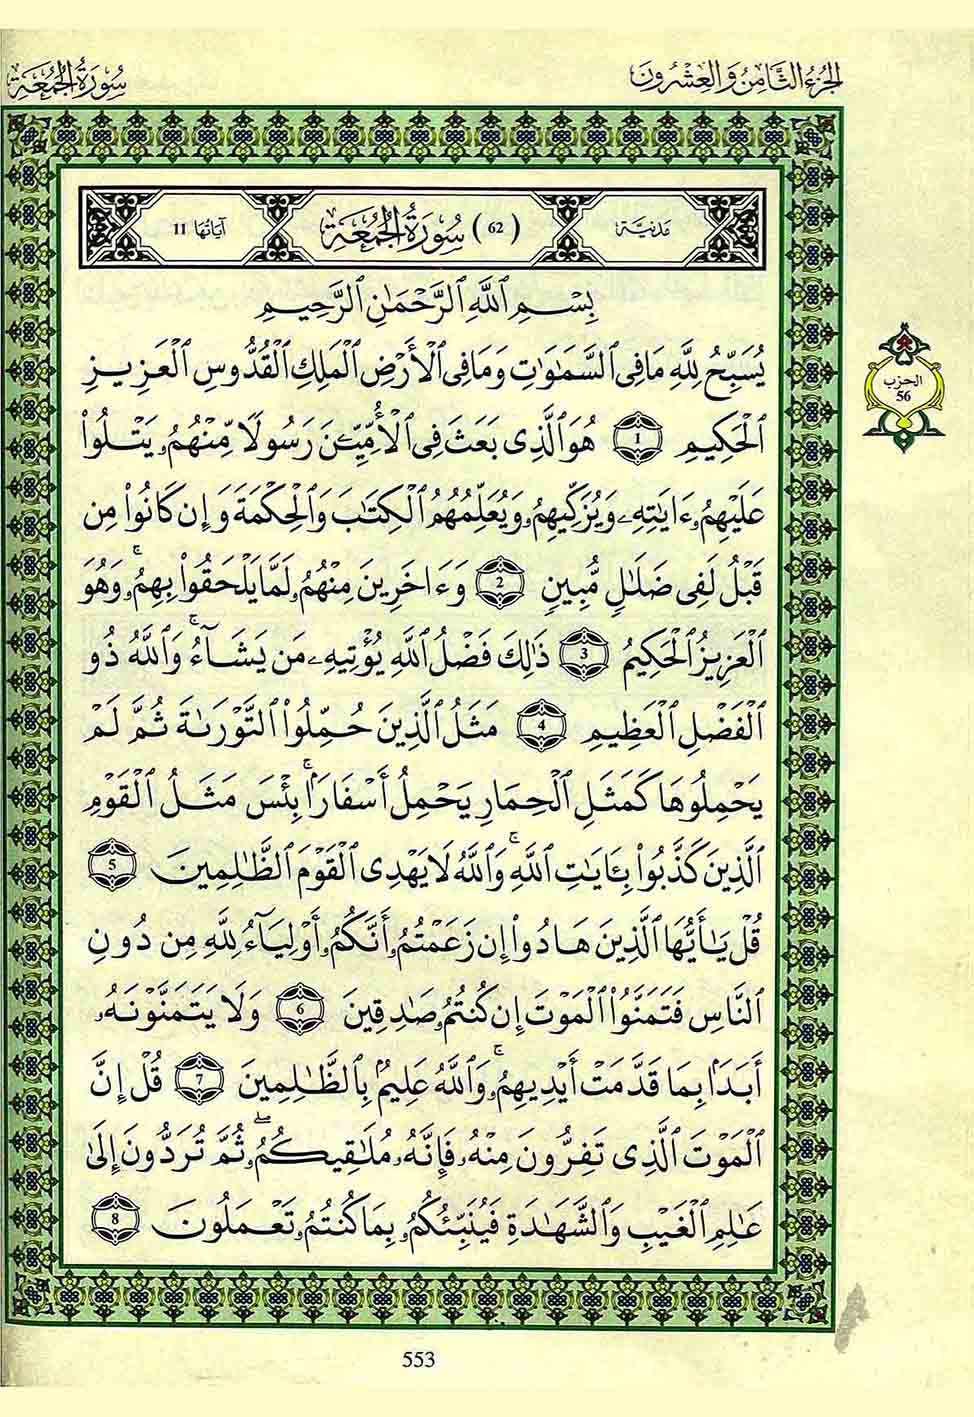 الجزء الثامن والعشرون
سورة الجمعة
مدنية
(62) سورة الجمعة
آياتها 11
الحزب
56
بِسْمِ ٱللَّهِ ٱلرَّحْمَٰنِ ٱلرَّحِيمِ
يُسَبِّحُ لِلَّهِ مَا فِى ٱلسَّمَٰوَٰتِ وَمَا فِى ٱلْأَرْضِ ٱلْمَلِكِ ٱلْقُدُّوسِ ٱلْعَزِيزِ
ٱلْحَكِيمِ 1 هُوَ ٱلَّذِى بَعَثَ فِى ٱلْأُمِّيِّـۧنَ رَسُولًا مِّنْهُمُۥ يَتْلُوا۟
عَلَيْهِمُۥٓ ءَايَٰتِهِۦ وَيُزَكِّيهِمُۥ وَيُعَلِّمُهُمُ ٱلْكِتَٰبَ وَٱلْحِكْمَةَ وَإِن كَانُوا۟ مِن
قَبْلُ لَفِى ضَلَٰلٍ مُّبِينٍ 2 وَءَاخَرِينَ مِنْهُمُۥ لَمَّا يَلْحَقُوا۟ بِهِمُۥ ۚ وَهُوَ
ٱلْعَزِيزُ ٱلْحَكِيمُ 3 ذَٰلِكَ فَضْلُ ٱللَّهِ يُؤْتِيهِ مَن يَشَآءُ ۚ وَٱللَّهُ ذُو
ٱلْفَضْلِ ٱلْعَظِيمِ 4 مَثَلُ ٱلَّذِينَ حُمِّلُوا۟ ٱلتَّوْرَىٰةَ ثُمَّ لَمْ
يَحْمِلُوهَا كَمَثَلِ ٱلْحِمَارِ يَحْمِلُ أَسْفَارًۢا ۚ بِئْسَ مَثَلُ ٱلْقَوْمِ
ٱلَّذِينَ كَذَّبُوا۟ بِـَٔايَٰتِ ٱللَّهِ ۚ وَٱللَّهُ لَا يَهْدِى ٱلْقَوْمَ ٱلظَّٰلِمِينَ 5
قُلْ يَٰٓأَيُّهَا ٱلَّذِينَ هَادُوٓا۟ إِن زَعَمْتُمُۥٓ أَنَّكُمُۥٓ أَوْلِيَآءُ لِلَّهِ مِن دُونِ
ٱلنَّاسِ فَتَمَنَّوُا۟ ٱلْمَوْتَ إِن كُنتُمُۥ صَٰدِقِينَ 6 وَلَا يَتَمَنَّوْنَهُۥٓ
أَبَدًۢا بِمَا قَدَّمَتْ أَيْدِيهِمُۥ ۚ وَٱللَّهُ عَلِيمٌۢ بِٱلظَّٰلِمِينَ 7 قُلْ إِنَّ
ٱلْمَوْتَ ٱلَّذِى تَفِرُّونَ مِنْهُۥ فَإِنَّهُۥ مُلَٰقِيكُمُۥ ۖ ثُمَّ تُرَدُّونَ إِلَىٰ
عَٰلِمِ ٱلْغَيْبِ وَٱلشَّهَٰدَةِ فَيُنَبِّئُكُمُۥ بِمَا كُنتُمُۥ تَعْمَلُونَ 8
553